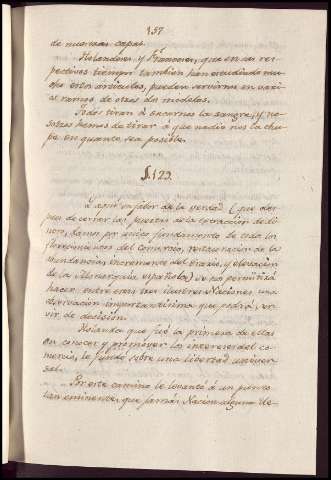 157
de nuestras capas.
Holandeses y Franceses, que en sus res-
pectivos tiempos tambien han estudiado mu-
cho estos artículos, pueden servirnos en vari-
os ramos de otros dos modelos.
Todos tiran á sacarnos la sangre, y no-
sotros hemos de tirar á que nadie nos la chu-
pe en quanto sea posible.
§. 129.
Y aquí en favor de la verdad (que des-
pues de cerrar las puertas de la extraccion de di-
nero, damos por unico fundamento de todo lo
del comercio, restauracion de la
abundancia, incremento del Erario, y elevacion
de la Monarquía española) se nos permitirá
hacer entre estas tres ilustres Naciones una
observacion importantísima que podrá ser-
vir de decision.
Holanda que fué la primera de ellas
en conocer y promover los intereses del co-
mercio, le fundó sobre una libertad univer-
sal.
Por este camino le levantó á un punto
tan eminente, que jamás Nacion alguna de-